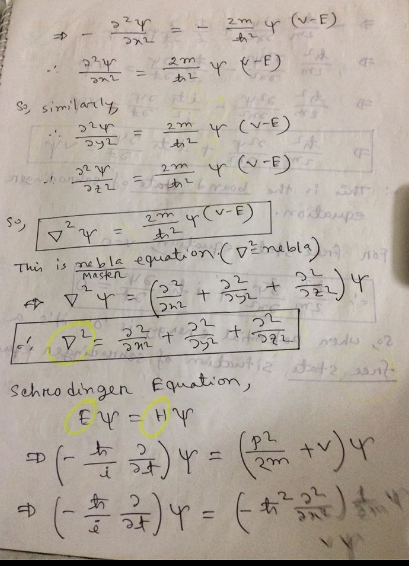 ⇒ - ∂²ψ/∂x² = - 2m/ħ² ψ (V-E)
∴ ∂²ψ/∂x² = 2m/ħ² ψ (V-E)
So, similarly
∴ ∂²ψ/∂y² = 2m/ħ² ψ (V-E)
∂²ψ/∂z² = 2m/ħ² ψ (V-E)
So, ∇²ψ = 2m/ħ² ψ (V-E)
This is nebla equation. (∇² = nebla)
master
⇒ ∇²ψ = (∂²/∂x² + ∂²/∂y² + ∂²/∂z²) ψ
∴ ∇² = ∂²/∂x² + ∂²/∂y² + ∂²/∂z²
Schrodinger Equation,
Eψ = Hψ
⇒ (- ħ/i ∂/∂t) ψ = (p²/2m + V) ψ
⇒ (- ħ/i ∂/∂t) ψ = (- ħ² ∂²/∂x²) 1/2m ψ